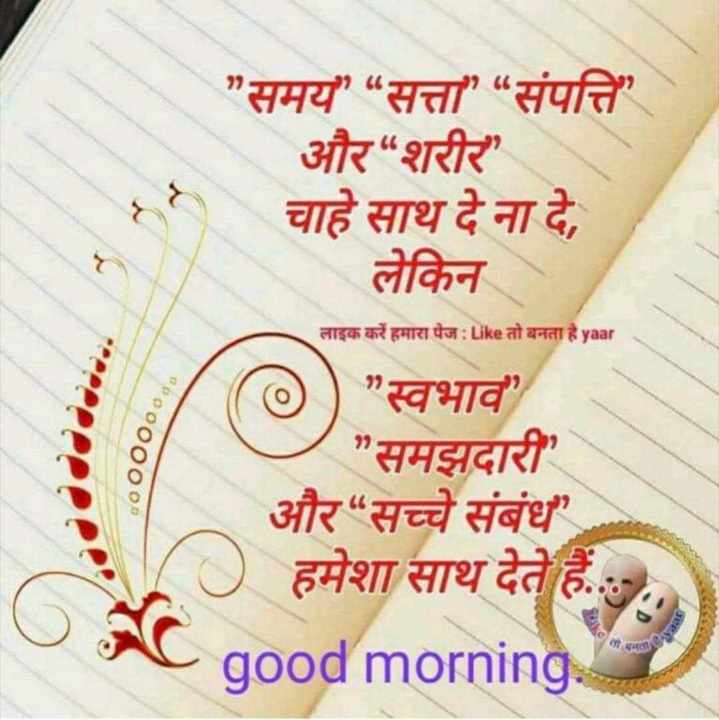 ”समय” “सत्ता” “संपत्ति”
और “शरीर”
चाहे साथ दे ना दे,
लेकिन
लाइक करें हमारा पेज : Like तो बनता है yaar
”स्वभाव”
”समझदारी”
और “सच्चे संबंध”
हमेशा साथ देते हैं...
good morning.
Like तो बनता है yaar